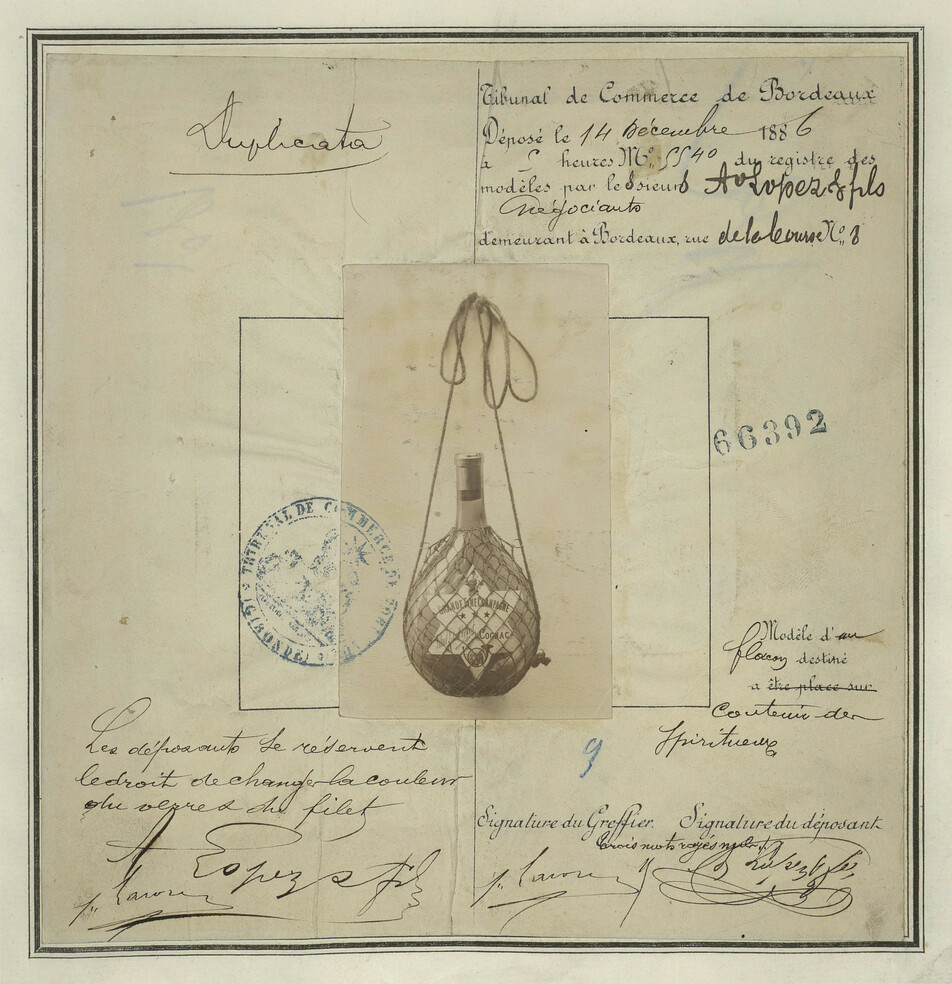 Duplicata
Tribunal de Commerce de Bordeaux
Déposé le 14 Décembre 1886
à 5 heures No. 5540 du registre des
modèles par le Sieurs A. Lopez & fils
négociants
demeurant à Bordeaux, rue de la Course No. 8
66392
TRIBUNAL DE COMMERCE DE BORDEAUX (GIRONDE)
GRANDE FINE CHAMPAGNE
COGNAC
Modèle d'un
flacon destiné
a être place sur
contenir des
Spiritueux
Les déposants se réservent
le droit de changer la couleur
du verre & du filet
9
Signature du Greffier. Signature du déposant
trois mots rayés nuls
Lopez & fils
Lopez & fils